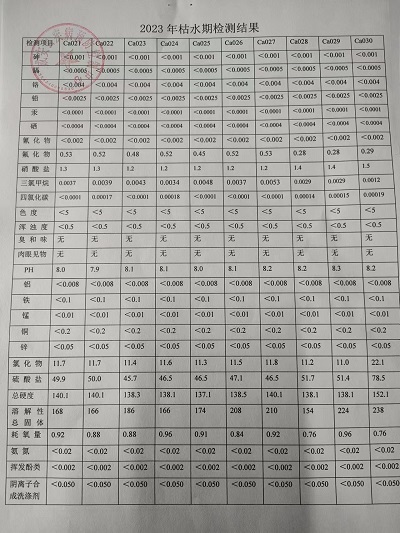 2023 年枯水期检测结果
检测项目 Ca021 Ca022 Ca023 Ca024 Ca025 Ca026 Ca027 Ca028 Ca029 Ca030
砷 <0.001 <0.001 <0.001 <0.001 <0.001 <0.001 <0.001 <0.001 <0.001 <0.001
镉 <0.0005 <0.0005 <0.0005 <0.0005 <0.0005 <0.0005 <0.0005 <0.0005 <0.0005 <0.0005
铬 <0.004 <0.004 <0.004 <0.004 <0.004 <0.004 <0.004 <0.004 <0.004 <0.004
铅 <0.0025 <0.0025 <0.0025 <0.0025 <0.0025 <0.0025 <0.0025 <0.0025 <0.0025 <0.0025
汞 <0.0001 <0.0001 <0.0001 <0.0001 <0.0001 <0.0001 <0.0001 <0.0001 <0.0001 <0.0001
硒 <0.0004 <0.0004 <0.0004 <0.0004 <0.0004 <0.0004 <0.0004 <0.0004 <0.0004 <0.0004
氰化物 <0.002 <0.002 <0.002 <0.002 <0.002 <0.002 <0.002 <0.002 <0.002 <0.002
氟化物 0.53 0.52 0.48 0.52 0.45 0.52 0.53 0.28 0.28 0.29
硝酸盐 1.3 1.3 1.2 1.2 1.2 1.2 1.2 1.4 1.4 1.5
三氯甲烷 0.0037 0.0039 0.0043 0.0034 0.0048 0.0037 0.0053 0.0029 0.0029 0.0012
四氯化碳 <0.0001 0.00017 <0.0001 0.00018 <0.0001 <0.0001 <0.0001 0.00014 0.00015 0.00019
色度 <5 <5 <5 <5 <5 <5 <5 <5 <5 <5
浑浊度 <0.5 <0.5 <0.5 <0.5 <0.5 <0.5 <0.5 <0.5 <0.5 <0.5
臭和味 无 无 无 无 无 无 无 无 无 无
肉眼见物 无 无 无 无 无 无 无 无 无 无
PH 8.0 7.9 8.1 8.1 8.0 8.1 8.2 8.2 8.3 8.2
铝 <0.008 <0.008 <0.008 <0.008 <0.008 <0.008 <0.008 <0.008 <0.008 <0.008
铁 <0.1 <0.1 <0.1 <0.1 <0.1 <0.1 <0.1 <0.1 <0.1 <0.1
锰 <0.01 <0.01 <0.01 <0.01 <0.01 <0.01 <0.01 <0.01 <0.01 <0.01
铜 <0.2 <0.2 <0.2 <0.2 <0.2 <0.2 <0.2 <0.2 <0.2 <0.2
锌 <0.05 <0.05 <0.05 <0.05 <0.05 <0.05 <0.05 <0.05 <0.05 <0.05
氯化物 11.7 11.7 11.4 11.6 11.3 11.5 11.8 11.2 11.0 22.1
硫酸盐 49.9 50.0 45.7 46.5 46.5 47.1 46.5 51.7 51.4 78.5
总硬度 140.1 140.1 138.3 138.1 137.1 138.5 140.1 138.1 138.1 152.1
溶解性
总固体 168 166 186 166 174 208 210 154 224 238
耗氧量 0.92 0.88 0.88 0.96 0.91 0.84 0.92 0.76 0.96 0.76
氨氮 <0.02 <0.02 <0.02 <0.02 <0.02 <0.02 <0.02 <0.02 <0.02 <0.02
挥发酚类 <0.002 <0.002 <0.002 <0.002 <0.002 <0.002 <0.002 <0.002 <0.002 <0.002
阴离子合
成洗涤剂 <0.050 <0.050 <0.050 <0.050 <0.050 <0.050 <0.050 <0.050 <0.050 <0.050